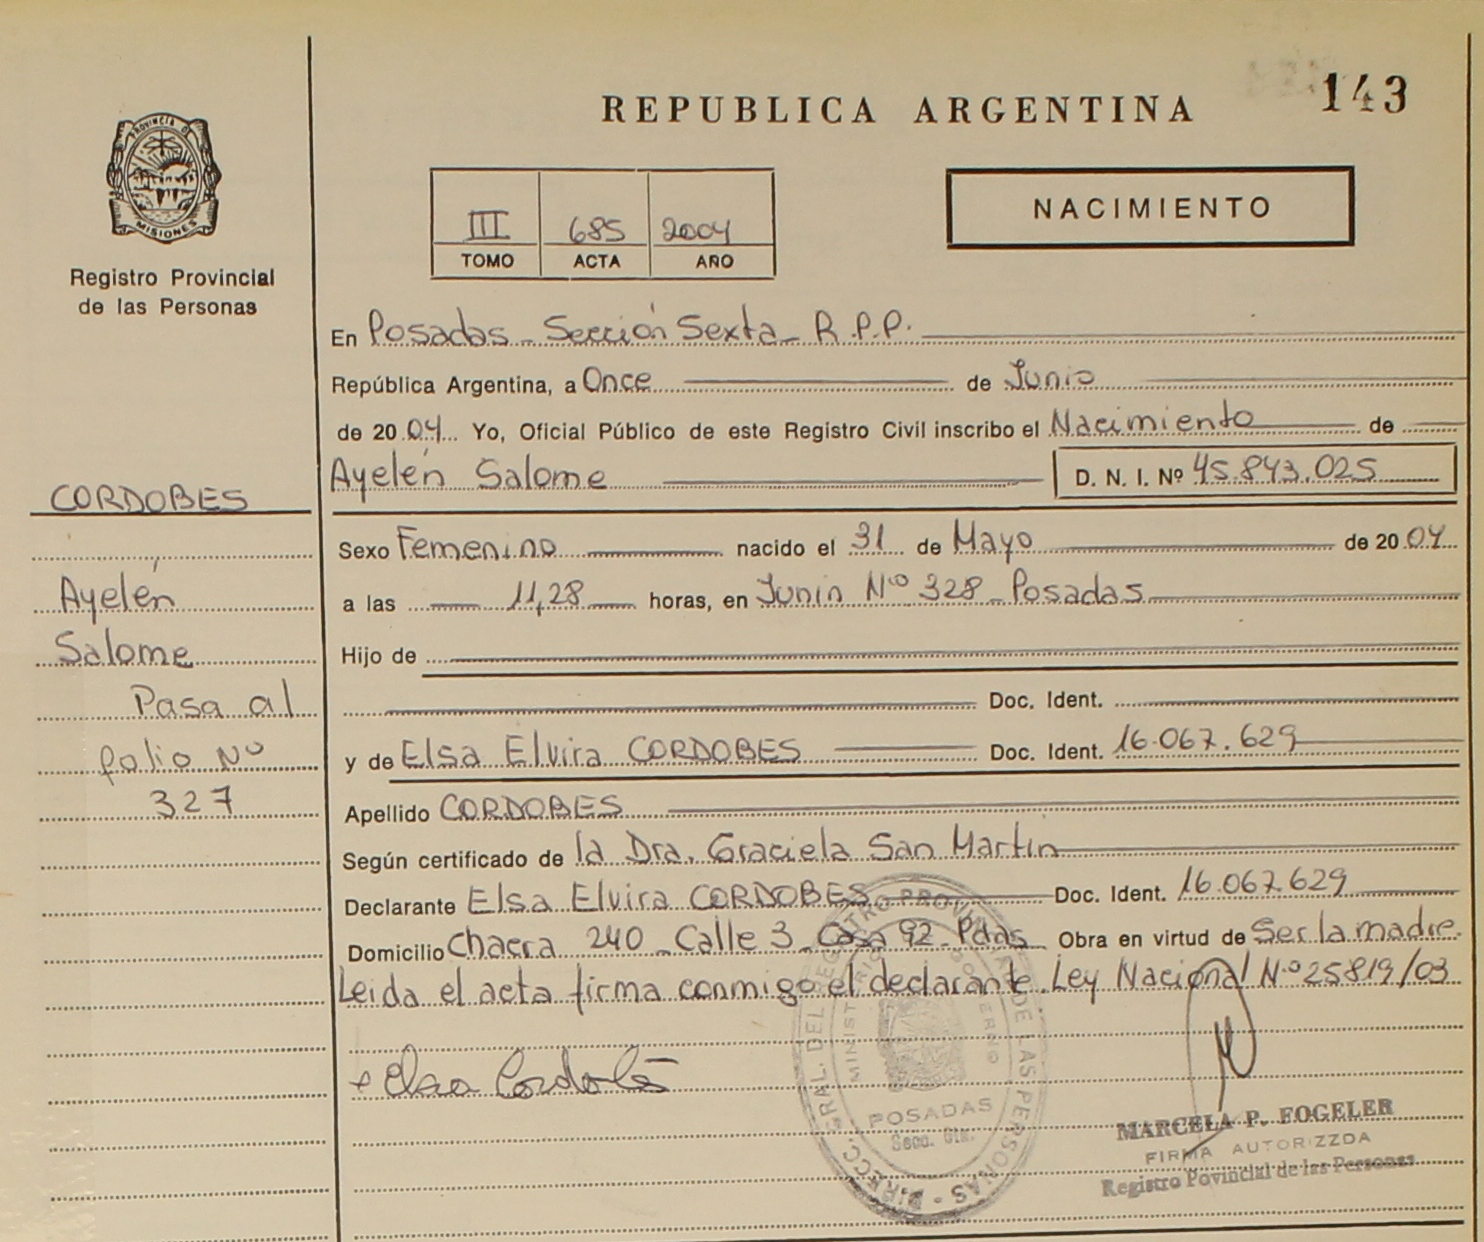 143
REPUBLICA ARGENTINA
PROVINCIA DE
MISIONES
Registro Provincial
de las Personas
III 685 2004
TOMO ACTA AÑO
NACIMIENTO
En Posadas - Sección Sexta - R.P.P.
República Argentina, a Once de Junio
de 2004 Yo, Oficial Público de este Registro Civil inscribo el Nacimiento de
Ayelén Salome D. N. I. Nº 45.843.025
CORDOBES
Ayelén
Salome
Pasa al
folio Nº
327
Sexo Femenino nacido el 31 de Mayo de 2004
a las 11,28 horas, en Junin Nº 328 - Posadas
Hijo de
Doc. Ident.
y de Elsa Elvira CORDOBES Doc. Ident. 16.067.629
Apellido CORDOBES
Según certificado de la Dra. Graciela San Martin
Declarante Elsa Elvira CORDOBES Doc. Ident. 16.067.629
Domicilio Chacra 240 - Calle 3 - Casa 92 - Pdas Obra en virtud de Ser la madre.
Leida el acta firma conmigo el declarante. Ley Nacional Nº 25819/03
Elsa Cordobés
POSADAS
MARCELA P. FOGELER
FIRMA AUTORIZZDA
Registro Povincial de las Personas